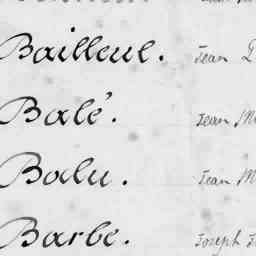 Bailleul. Jean
Balé. Jean
Balu. Jean
Barbe. Joseph